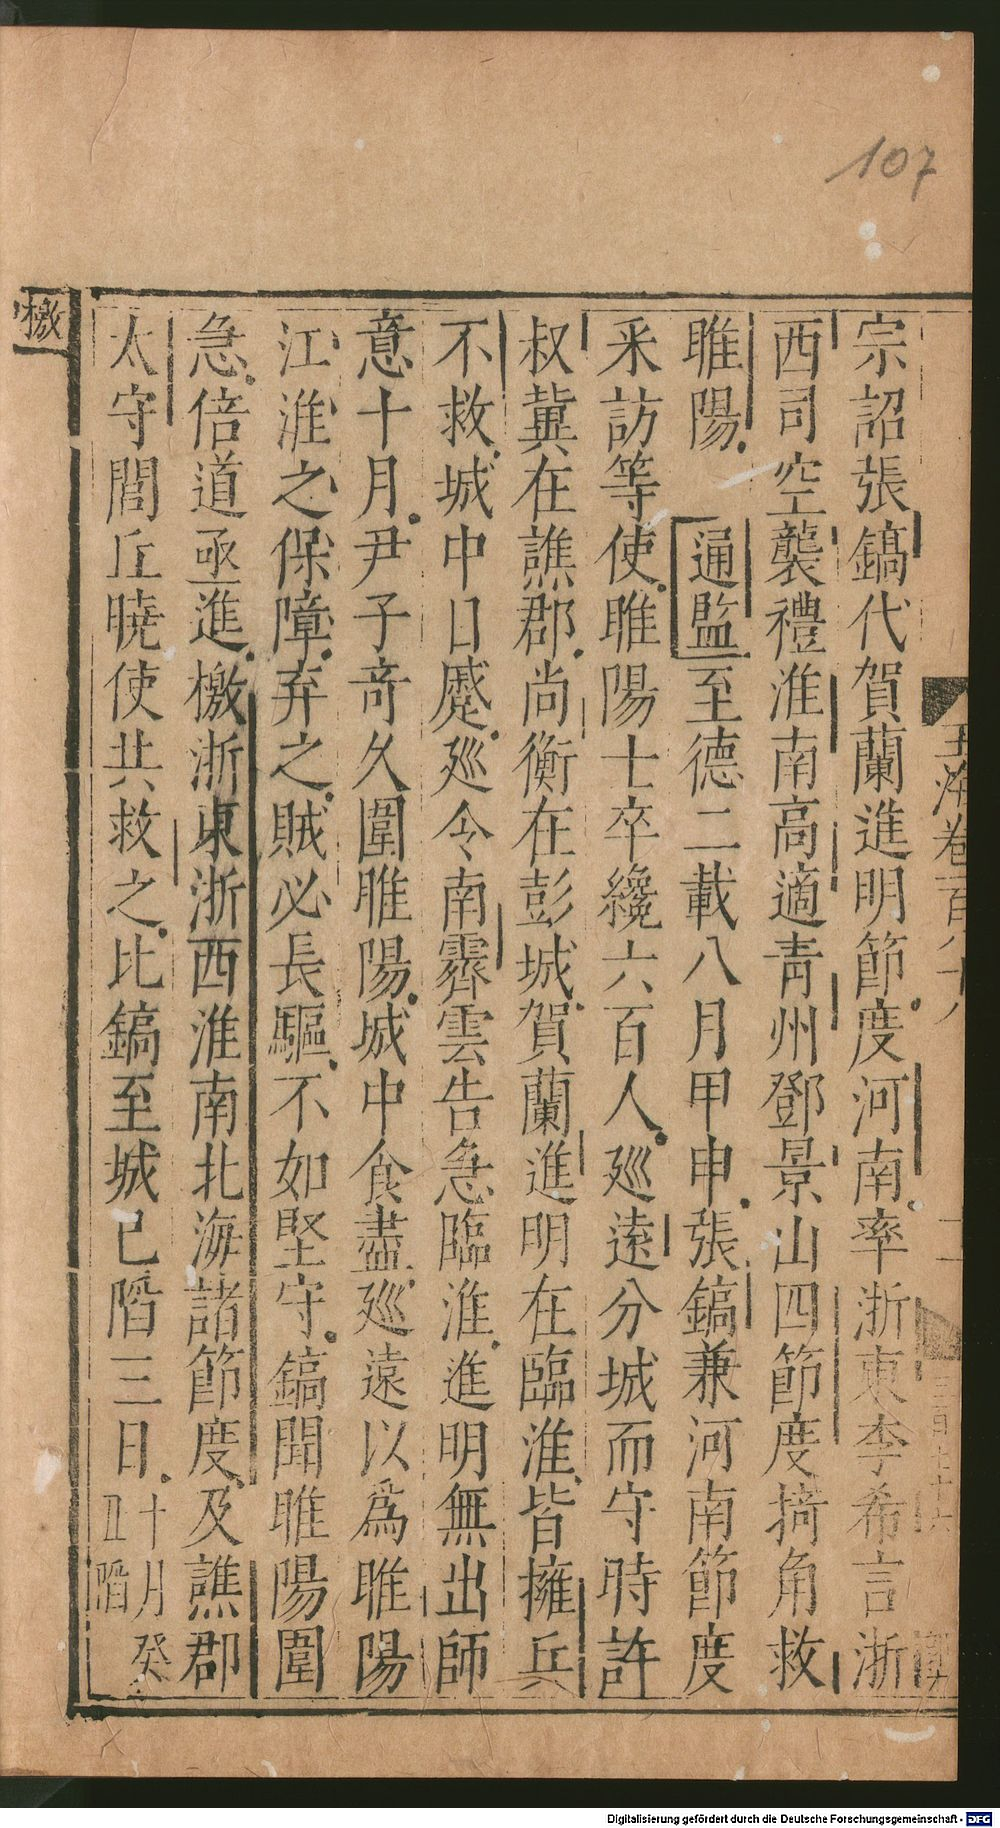 107
宗詔張鎬代賀蘭進明節度河南率浙東李希言浙
西司空襲禮淮南高適青州鄧景山四節度掎角救
睢陽 通監至德二載八月甲申張鎬兼河南節度
采訪等使睢陽士卒纔六百人廵遠分城而守時許
叔冀在譙郡尚衡在彭城賀蘭進明在臨淮皆擁兵
不救城中日蹙廵令南霽雲告急臨淮進明無出師
意十月尹子竒久圍睢陽城中食盡廵遠以爲睢陽
江淮之保障弃之賊必長驅不如堅守鎬聞睢陽圍
急倍道亟進檄浙東浙西淮南北海諸節度及譙郡
太守閭丘曉使共救之比鎬至城已陷三日十月癸
丑陷
檄
玉海卷一百八十八
Digitalisierung gefördert durch die Deutsche Forschungsgemeinschaft - DFG